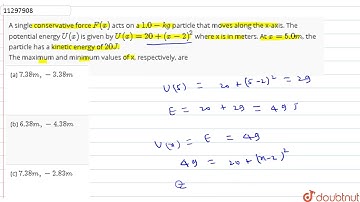 11297908
A single conservative force F(x) acts on a 1.0 − kg particle that moves along the x-axis. The
potential energy U(x) is given by U(x) = 20 + (x − 2)² where x is in meters. At x = 5.0m, the
particle has a kinetic energy of 20J.
The maximum and minimum values of x, respectively, are
(a) 7.38m, −3.38m
(b) 6.38m, −4.38m
(c) 7.38m, −2.83m
U(5) = 20 + (5-2)² = 29
E = 20 + 29 = 49 J
U(x) = E = 49
49 = 20 + (x-2)²
doubtnut